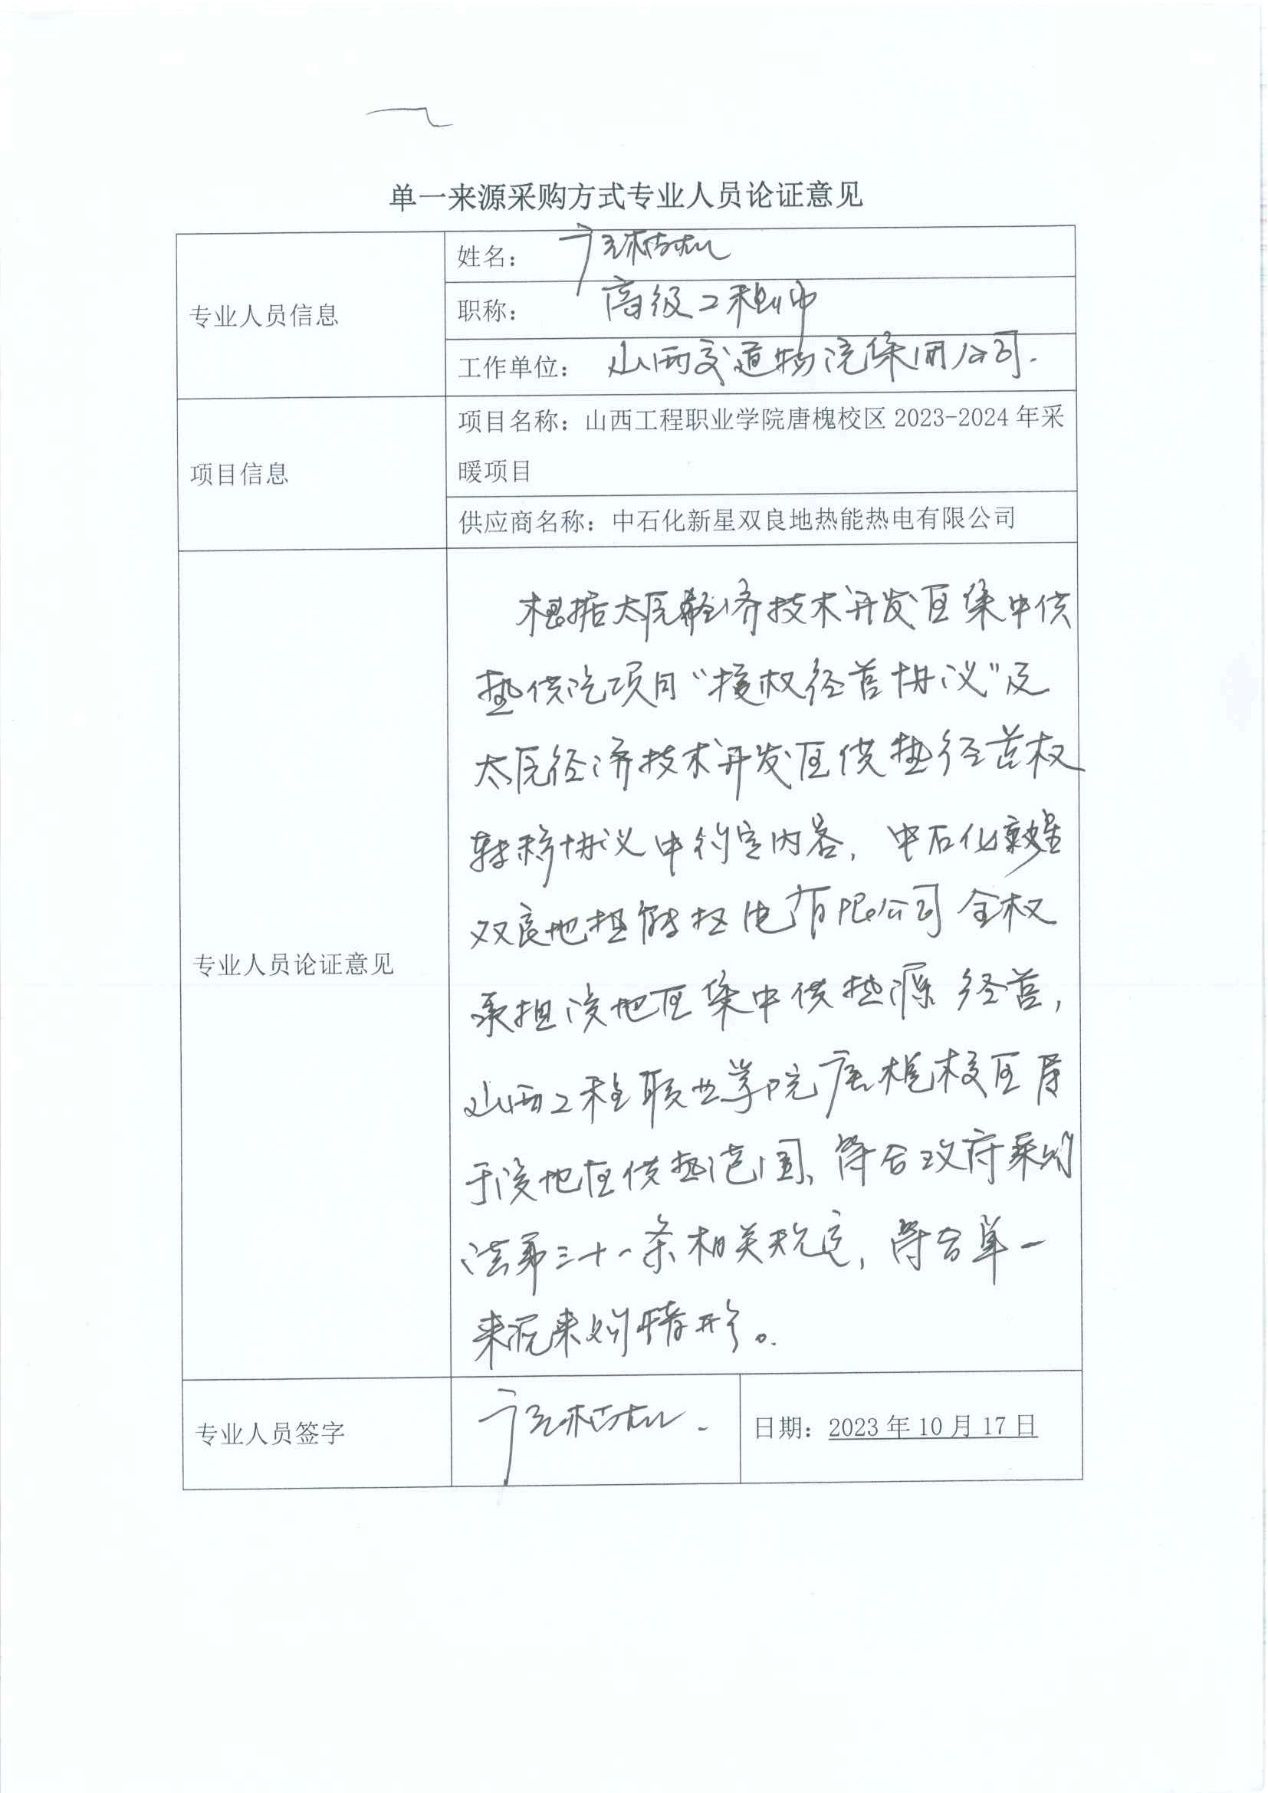 单一来源采购方式专业人员论证意见
专业人员信息
姓名：
职称： 高级工程师
工作单位： 山西交通物流集团公司.
项目信息
项目名称：山西工程职业学院唐槐校区 2023-2024 年采
暖项目
供应商名称：中石化新星双良地热能热电有限公司
专业人员论证意见
根据太原经济技术开发区集中供
热供汽项目“授权经营协议”及
太原经济技术开发区供热经营权
转移协议中约定内容，中石化新星
双良地热能热电有限公司全权
承担该地区集中供热源经营，
山西工程职业学院唐槐校区属
于该地区供热范围、符合政府采购
法第三十一条相关规定，符合单一
来源采购情形。
专业人员签字
日期：2023 年 10 月 17 日